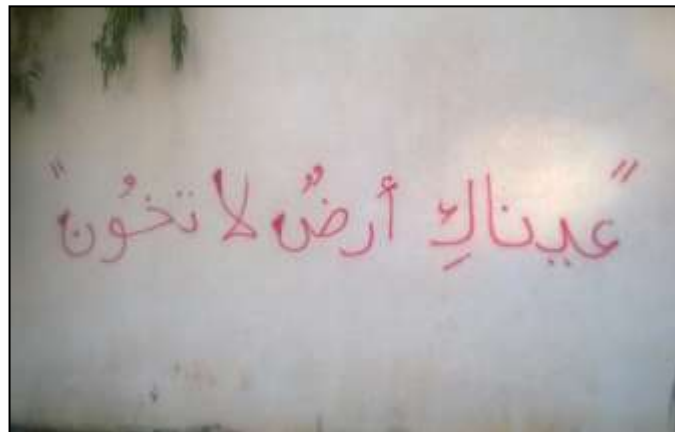 "عيناكِ أرضٌ لا تخُون"